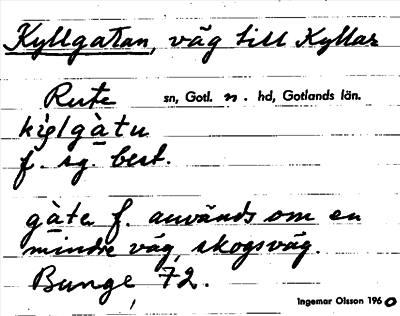 Kyllgatan, väg till Kyllaz
Rute sn, Gotl. n. hd, Gotlands län.
kiᶅlgàtu
f. sg. best.
gàta f. används om en
mindre väg, skogsväg.
Bunge, 72.
Ingemar Olsson 1960